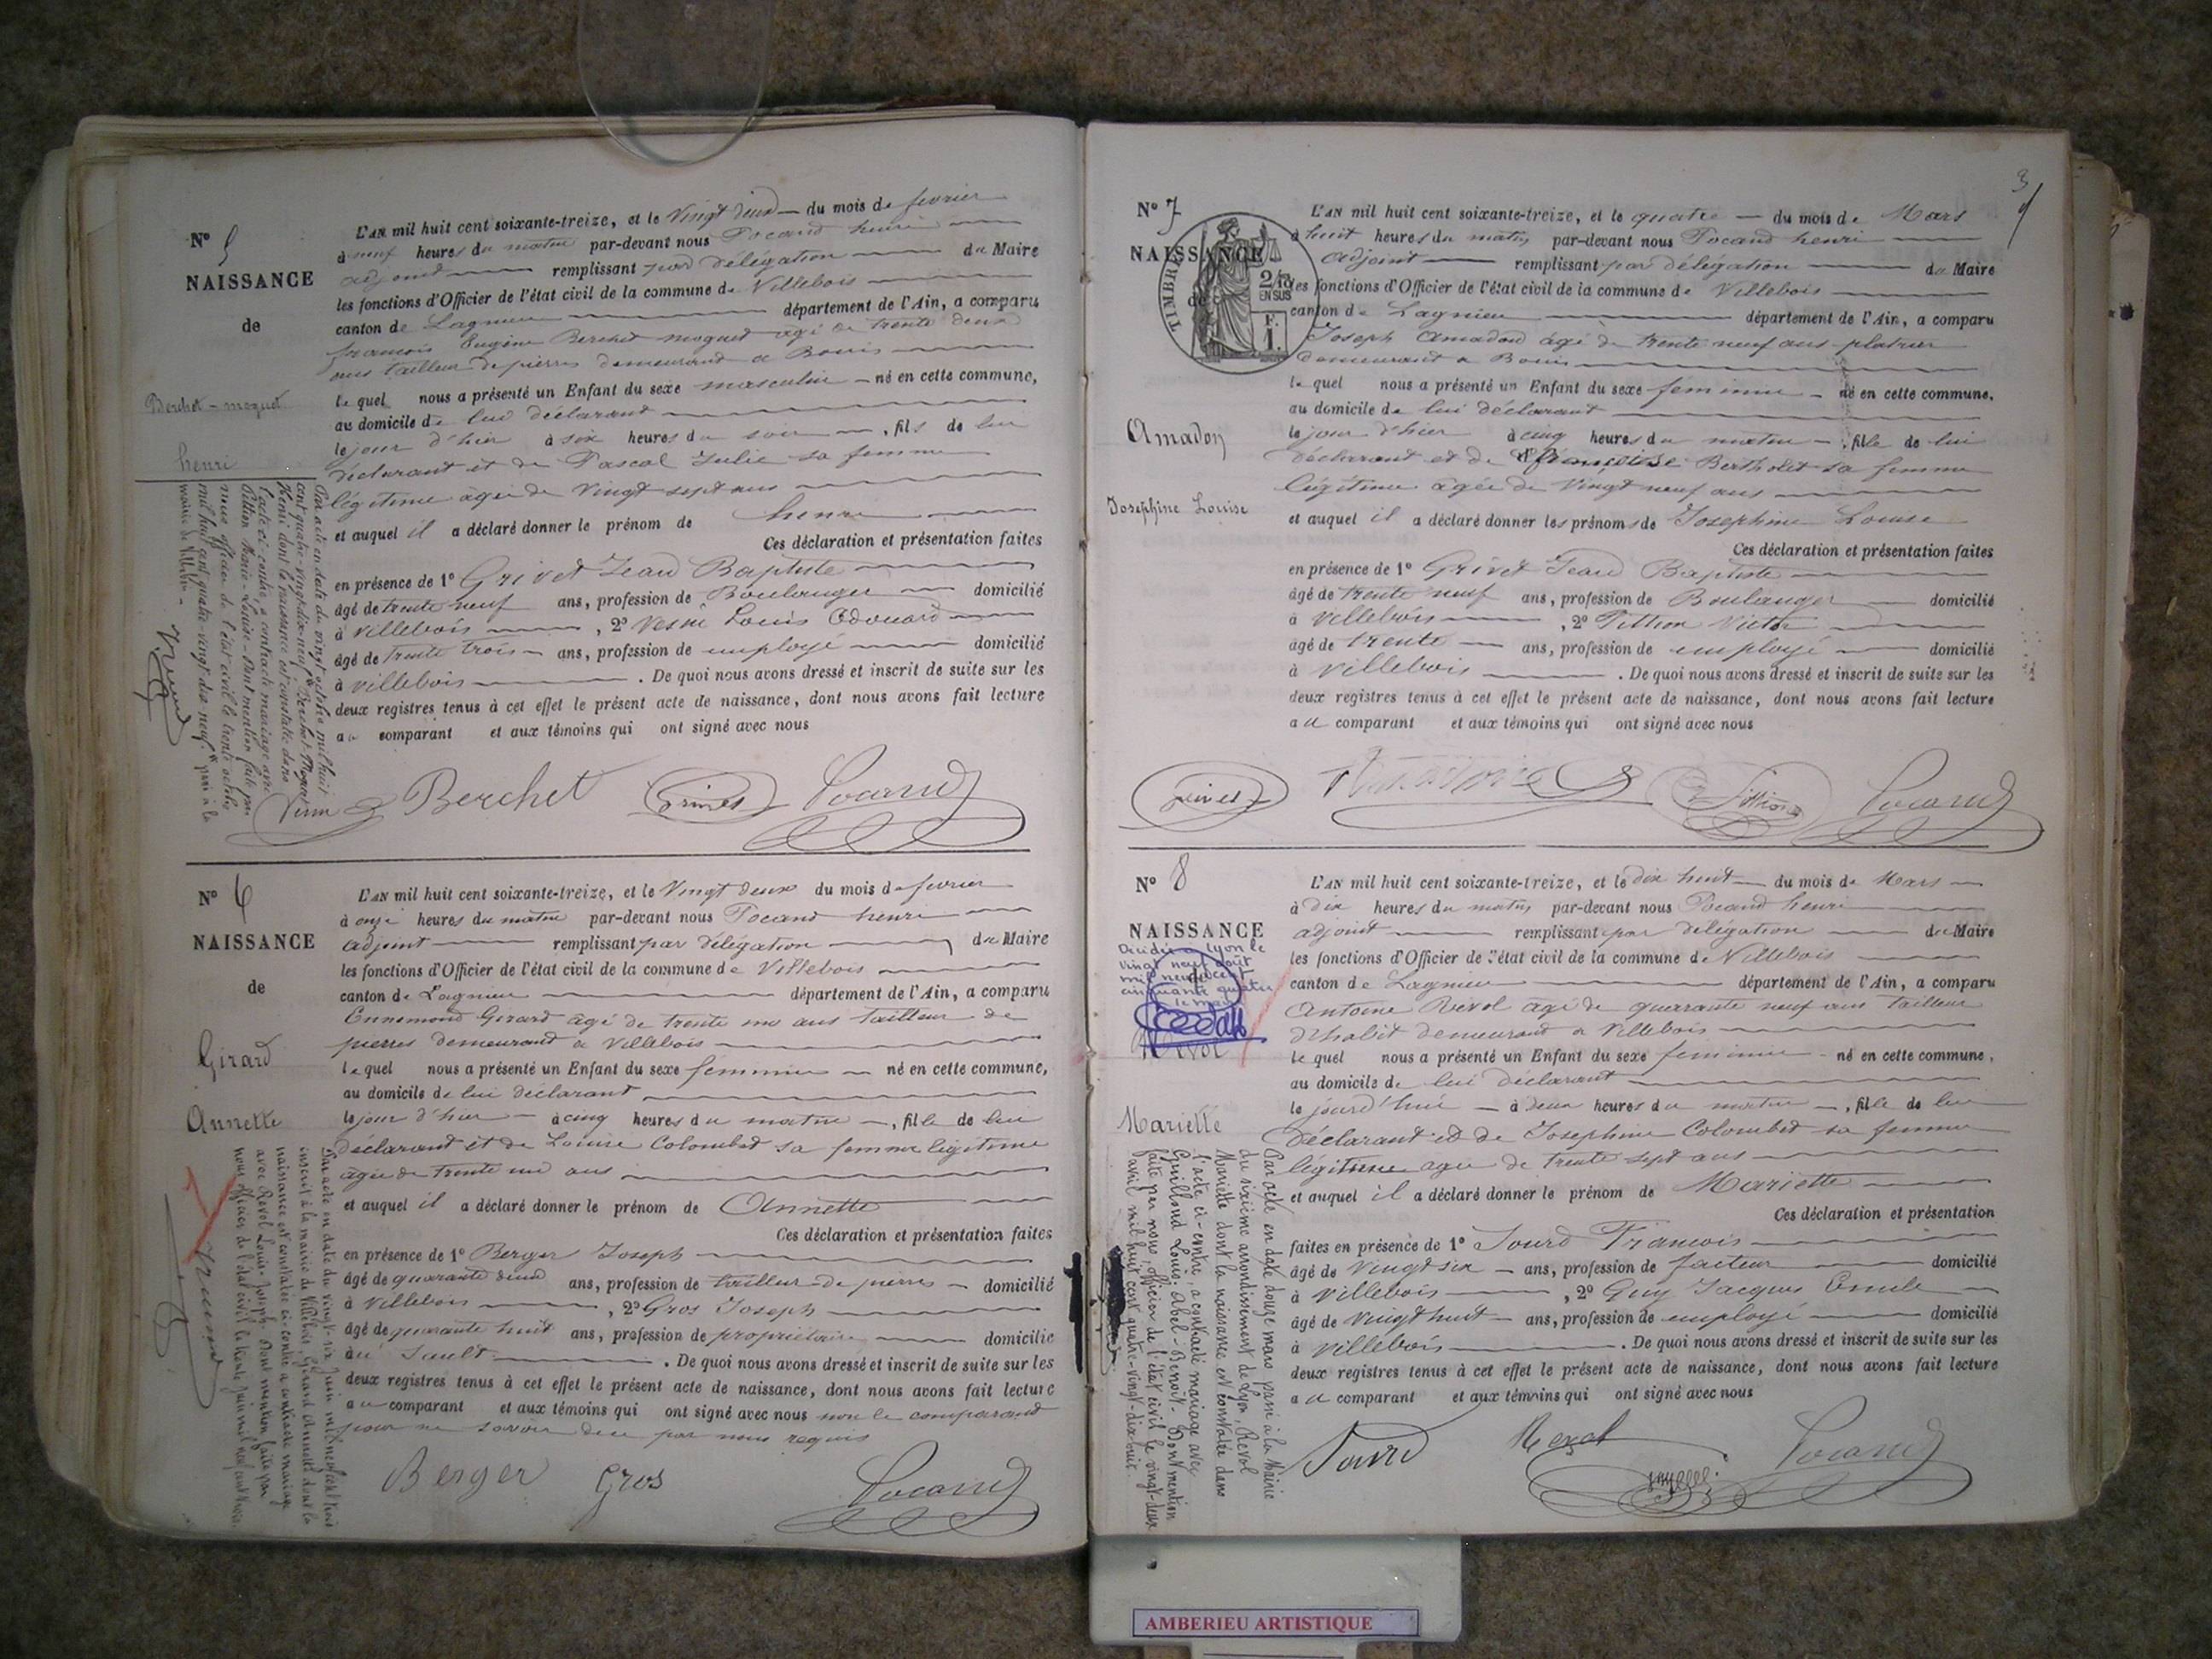 N° 5
NAISSANCE
de
Berchet-moquet
henri
L'AN mil huit cent soixante-treize, et le Vingt deux du mois de fevrier
à neuf heures du matin par-devant nous Pocard henri
adjoint remplissant par délégation du Maire
les fonctions d'Officier de l'état civil de la commune de Villebois
canton de Lagnieu département de l'Ain, a comparu
francois Eugène Berchet moquet agé de trente deux
ans tailleur de pierres demeurant a Bouis
le quel nous a présenté un Enfant du sexe masculin né en cette commune,
au domicile de lui déclarant
le jour d'hier à six heures du soir, fils de lui
déclarant et de Pascal Julie sa femme
légitime agée de Vingt sept ans
et auquel il a déclaré donner le prénom de henri
Ces déclaration et présentation faites
en présence de 1° Grivet Jean Baptiste
âgé de trente neuf ans, profession de Boulanger domicilié
à Villebois, 2° Louis Edouard
âgé de trente trois ans, profession de employé domicilié
à Villebois. De quoi nous avons dressé et inscrit de suite sur les
deux registres tenus à cet effet le présent acte de naissance, dont nous avons fait lecture
au comparant et aux témoins qui ont signé avec nous
Par acte en date du vingt octobre mil huit
cent quatre-vingt-dix-neuf, Berchet-Moquet
Henri dont la naissance est constatée dans
l'acte ci-contre, a contracté mariage avec
Marie-Louise - Dont mention faite par
nous officier de l'état civil le trente octobre
mil huit cent quatre-vingt-dix neuf
mairie de Villebois
Berchet Grivet Pocard
N° 6
NAISSANCE
de
Girard
Annette
L'AN mil huit cent soixante-treize, et le Vingt deux du mois de fevrier
à onze heures du matin par-devant nous Pocard henri
adjoint remplissant par délégation du Maire
les fonctions d'Officier de l'état civil de la commune de Villebois
canton de Lagnieu département de l'Ain, a comparu
Ennemond Girard agé de trente un ans tailleur de
pierres demeurant a Villebois
le quel nous a présenté un Enfant du sexe feminin né en cette commune,
au domicile de lui déclarant
le jour d'hier à cinq heures du matin, fille de lui
déclarant et de Louise Colombet sa femme légitime
agée de trente un ans
et auquel il a déclaré donner le prénom de Annette
Ces déclaration et présentation faites
en présence de 1° Berger Joseph
âgé de quarante deux ans, profession de tailleur de pierres domicilié
à Villebois, 2° Gros Joseph
âgé de quarante huit ans, profession de propriétaire domicilié
au Sault. De quoi nous avons dressé et inscrit de suite sur les
deux registres tenus à cet effet le présent acte de naissance, dont nous avons fait lecture
au comparant et aux témoins qui ont signé avec nous non le comparant
pour ne savoir de ce par nous requis
Par acte en date du vingt-six juin mil neuf cent trois
inscrit à la mairie de Villebois, Girard Annette dont la
naissance est constatée ci-contre a contracté mariage
avec Revol Louis-Joseph. Dont mention faite par
nous officier de l'état civil le trente juin mil neuf cent trois.
Berger Gros Pocard
3
N° 7
NAISSANCE
de
TIMBRE
2/10 EN SUS
F. 1.
Amadon
Josephine Louise
L'AN mil huit cent soixante-treize, et le quatre du mois de Mars
à huit heures du matin par-devant nous Pocard henri
adjoint remplissant par délégation du Maire
les fonctions d'Officier de l'état civil de la commune de Villebois
canton de Lagnieu département de l'Ain, a comparu
Joseph Amadon âgé de trente neuf ans platrier
demeurant a Bouis
le quel nous a présenté un Enfant du sexe feminin né en cette commune,
au domicile de lui déclarant
le jour d'hier à cinq heures du matin, fille de lui
déclarant et de françoise Bertholet sa femme
légitime agée de Vingt neuf ans
et auquel il a déclaré donner les prénoms de Josephine Louise
Ces déclaration et présentation faites
en présence de 1° Grivet Jean Baptiste
âgé de trente neuf ans, profession de Boulanger domicilié
à Villebois, 2° Pittion Victor
âgé de trente ans, profession de employé domicilié
à Villebois. De quoi nous avons dressé et inscrit de suite sur les
deux registres tenus à cet effet le présent acte de naissance, dont nous avons fait lecture
au comparant et aux témoins qui ont signé avec nous
Grivet Pittion Pocard
N° 8
NAISSANCE
de
Décidée à Lyon le
vingt neuf août
mil neuf cent
cinquante quatre
le maire
Revol
Mariette
L'AN mil huit cent soixante-treize, et le dix huit du mois de Mars
à dix heures du matin par-devant nous Pocard henri
adjoint remplissant par délégation du Maire
les fonctions d'Officier de l'état civil de la commune de Villebois
canton de Lagnieu département de l'Ain, a comparu
Antoine Revol agé de quarante neuf ans tailleur
d'habit demeurant a Villebois
le quel nous a présenté un Enfant du sexe feminin né en cette commune,
au domicile de lui déclarant
le jourd'hui à deux heures du matin, fille de lui
déclarant et de Josephine Colombet sa femme
légitime agée de trente sept ans
et auquel il a déclaré donner le prénom de Mariette
Ces déclaration et présentation
faites en présence de 1° Jourd Francois
âgé de vingt six ans, profession de facteur domicilié
à Villebois, 2° Guy Jacques Emile
âgé de vingt huit ans, profession de employé domicilié
à Villebois. De quoi nous avons dressé et inscrit de suite sur les
deux registres tenus à cet effet le présent acte de naissance, dont nous avons fait lecture
au comparant et aux témoins qui ont signé avec nous
Par acte en date douze mars passé à la Mairie
du sixième arrondissement de Lyon, Revol
Mariette dont la naissance est constatée dans
l'acte ci-contre, a contracté mariage avec
Guilloud Louis-Abel-Benoît. Dont mention
faite par nous, officier de l'état civil le vingt-deux
avril mil huit cent quatre-vingt-dix-huit.
Jourd Revol Pocard
AMBERIEU ARTISTIQUE